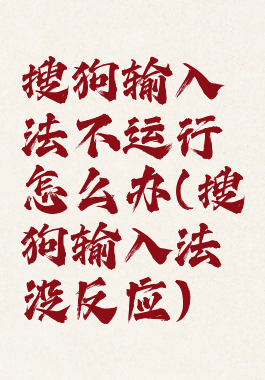 搜狗输入
法不运行
怎么办(搜
狗输入法
没反应)